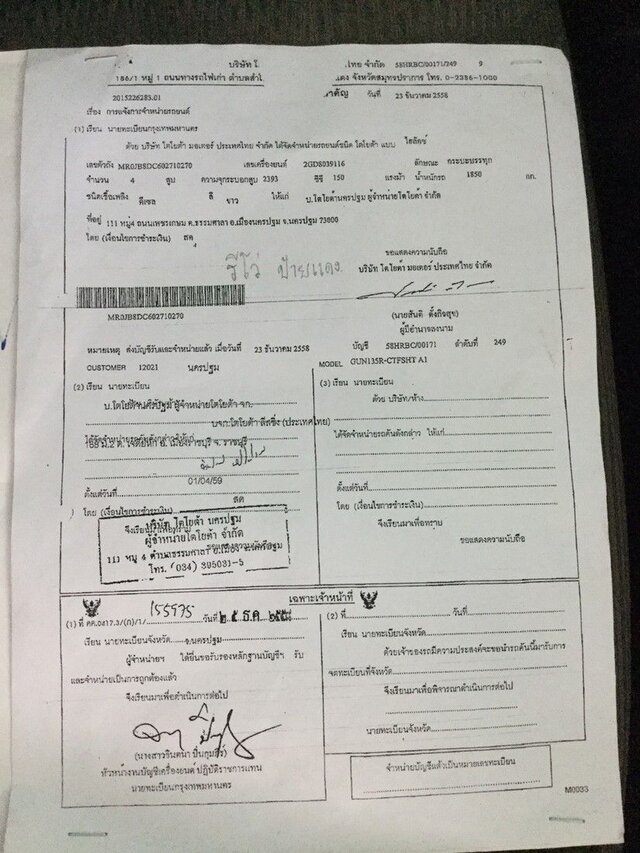 บริษัท โ ไทย จำกัด 58HRBC/00171/249 9
186/1 หมู่ 1 ถนนทางรถไฟเก่า ตำบลสำโ แดง จังหวัดสมุทรปราการ โทร. 0-2386-1000
2015226283.01 าคัญ วันที่ 23 ธันวาคม 2558
เรื่อง การแจ้งการจำหน่ายรถยนต์
(1) เรียน นายทะเบียนกรุงเทพมหานคร
ด้วย บริษัท โตโยต้า มอเตอร์ ประเทศไทย จำกัด ได้จัดจำหน่ายรถยนต์ชนิด โตโยต้า แบบ ไฮลักซ์
เลขตัวถัง MR0JB8DC602710270 เลขเครื่องยนต์ 2GD8039116 ลักษณะ กระบะบรรทุก
จำนวน 4 สูบ ความจุกระบอกสูบ 2393 ซีซี 150 แรงม้า น้ำหนักรถ 1850 กก.
ชนิดเชื้อเพลิง ดีเซล สี ขาว ให้แก่ บ.โตโยต้านครปฐม ผู้จำหน่ายโตโยต้า จำกัด
ที่อยู่ 111 หมู่4 ถนนเพชรเกษม ต.ธรรมศาลา อ.เมืองนครปฐม จ.นครปฐม 73000
โดย (เงื่อนไขการชำระเงิน) สด
ขอแสดงความนับถือ
รีโว่ ป้ายแดง
บริษัท โตโยต้า มอเตอร์ ประเทศไทย จำกัด
MR0JB8DC602710270
(นายสันติ ตั้งกิจสุข)
ผู้มีอำนาจลงนาม
หมายเหตุ ส่งบัญชีรับและจำหน่ายแล้ว เมื่อวันที่ 23 ธันวาคม 2558 บัญชี 58HRBC/00171 ลำดับที่ 249
CUSTOMER 12021 นครปฐม MODEL GUN135R-CTFSHT A1
(2) เรียน นายทะเบียน
บ.โตโยต้านครปฐม ผู้จำหน่ายโตโยต้า จก.
บจก.โตโยต้า ลีสซิ่ง (ประเทศไทย)
ได้จัดจำหน่ายรถคันดังกล่าว ให้แก่
อ.เมืองราชบุรี จ.ราชบุรี
01/04/59
ตั้งแต่วันที่
สด
โดย (เงื่อนไขการชำระเงิน)
จึงเรียนมาเพื่อทราบ
บริษัท โตโยต้า นครปฐม
ผู้จำหน่ายโตโยต้า จำกัด
111 หมู่ 4 ตำบลธรรมศาลา อ.เมือง จ.นครปฐม
โทร. (034) 395031-5
(3) เรียน นายทะเบียน
ด้วย บริษัท/ห้าง
ได้จัดจำหน่ายรถคันดังกล่าว ให้แก่
ตั้งแต่วันที่
โดย (เงื่อนไขการชำระเงิน)
จึงเรียนมาเพื่อทราบ
ขอแสดงความนับถือ
เฉพาะเจ้าหน้าที่
(1) ที่ คค.0417.3/(ก)/1/ 155975 วันที่ ๒๕ ธ.ค. ๒๕๕๘
เรียน นายทะเบียนจังหวัด จ.นครปฐม
ผู้จำหน่ายฯ ได้ยื่นขอรับรองหลักฐานบัญชีฯ รับ
และจำหน่ายเป็นการถูกต้องแล้ว
จึงเรียนมาเพื่อดำเนินการต่อไป
(นางสาวจินตนา
หัวหน้างานบัญชีเครื่องยนต์ ปฏิบัติราชการแทน
นายทะเบียนกรุงเทพมหานคร
(2) ที่ วันที่
เรียน นายทะเบียนจังหวัด
ด้วยเจ้าของรถมีความประสงค์จะขอนำรถคันนี้มารับการ
จดทะเบียนที่จังหวัด
จึงเรียนมาเพื่อพิจารณาดำเนินการต่อไป
นายทะเบียนจังหวัด
จำหน่ายบัญชีแล้วเป็นหมายเลขทะเบียน
M0033